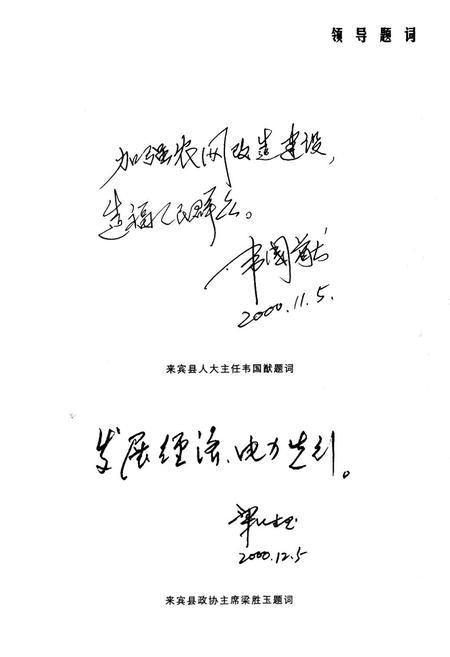 领导题词
加强农网改造建设，
造福人民群众。
韦国猷
2000.11.5.
来宾县人大主任韦国猷题词
发展经济、电力先行。
梁胜玉
2000.12.5
来宾县政协主席梁胜玉题词